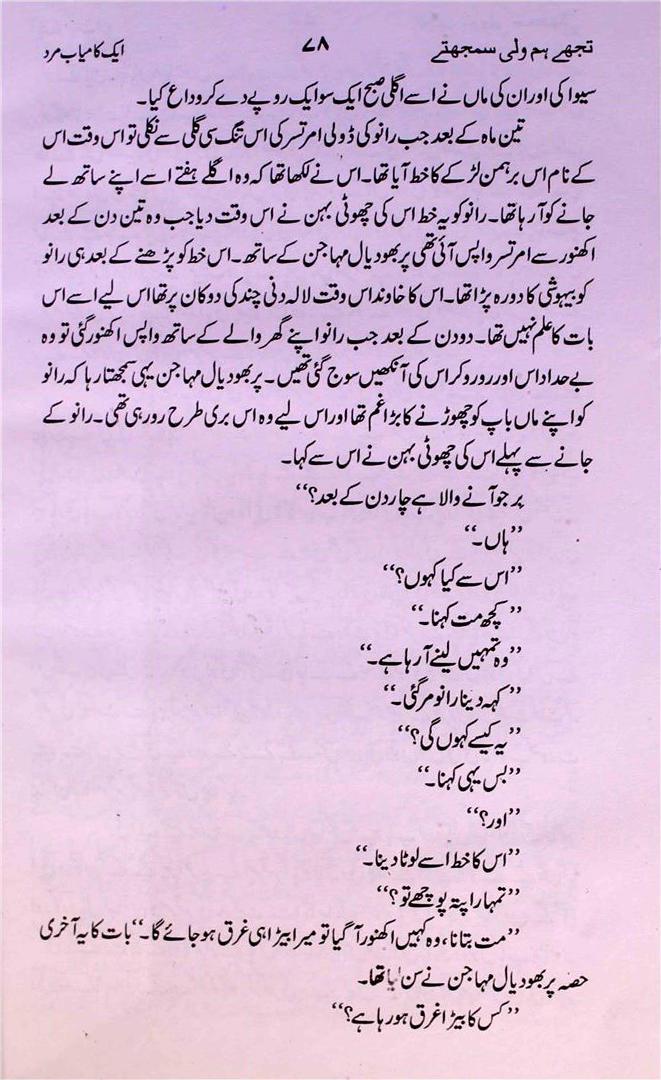 تجھے ہم ولی سمجھتے ۷۸ ایک کامیاب مرد
سیوا کی اور ان کی ماں نے اسے اگلی صبح ایک سو ایک روپے دے کر وداع کیا۔
تین ماہ کے بعد جب رانو کی ڈولی امرتسر کی اس تنگ سی گلی سے نکلی تو اس وقت اس
کے نام اس برہمن لڑکے کا خط آیا تھا۔ اس نے لکھا تھا کہ وہ اگلے ہفتے اسے اپنے ساتھ لے
جانے کو آ رہا تھا۔ رانو کو یہ خط اس کی چھوٹی بہن نے اس وقت دیا جب وہ تین دن کے بعد
اکھنور سے امرتسر واپس آئی تھی پربھو دیال مہاجن کے ساتھ۔ اس خط کو پڑھنے کے بعد ہی رانو
کو بیہوشی کا دورہ پڑا تھا۔ اس کا خاوند اس وقت لالہ دنی چند کی دوکان پر تھا اس لیے اسے اس
بات کا علم نہیں تھا۔ دو دن کے بعد جب رانو اپنے گھر والے کے ساتھ واپس اکھنور گئی تو وہ
بے حد اداس اور رو رو کر اس کی آنکھیں سوج گئی تھیں۔ پربھو دیال مہاجن یہی سمجھتا رہا کہ رانو
کو اپنے ماں باپ کو چھوڑنے کا بڑا غم تھا اور اس لیے وہ اس بری طرح رو رہی تھی۔ رانو کے
جانے سے پہلے اس کی چھوٹی بہن نے اس سے کہا۔
پر جو آنے والا ہے چار دن کے بعد؟‘‘
’’ہاں۔‘‘
’’اس سے کیا کہوں؟‘‘
’’کچھ مت کہنا۔‘‘
’’وہ تمہیں لینے آ رہا ہے۔‘‘
’’کہہ دینا رانو مر گئی۔‘‘
’’یہ کیسے کہوں گی؟‘‘
’’بس یہی کہنا۔‘‘
’’اور؟‘‘
’’اس کا خط اسے لوٹا دینا۔‘‘
’’تمہارا پتہ پوچھے تو؟‘‘
’’مت بتانا، وہ کہیں اکھنور آ گیا تو میرا بیڑا ہی غرق ہو جائے گا۔‘‘ بات کا یہ آخری
حصہ پربھو دیال مہاجن نے سن لیا تھا۔
’’کس کا بیڑا غرق ہو رہا ہے؟‘‘